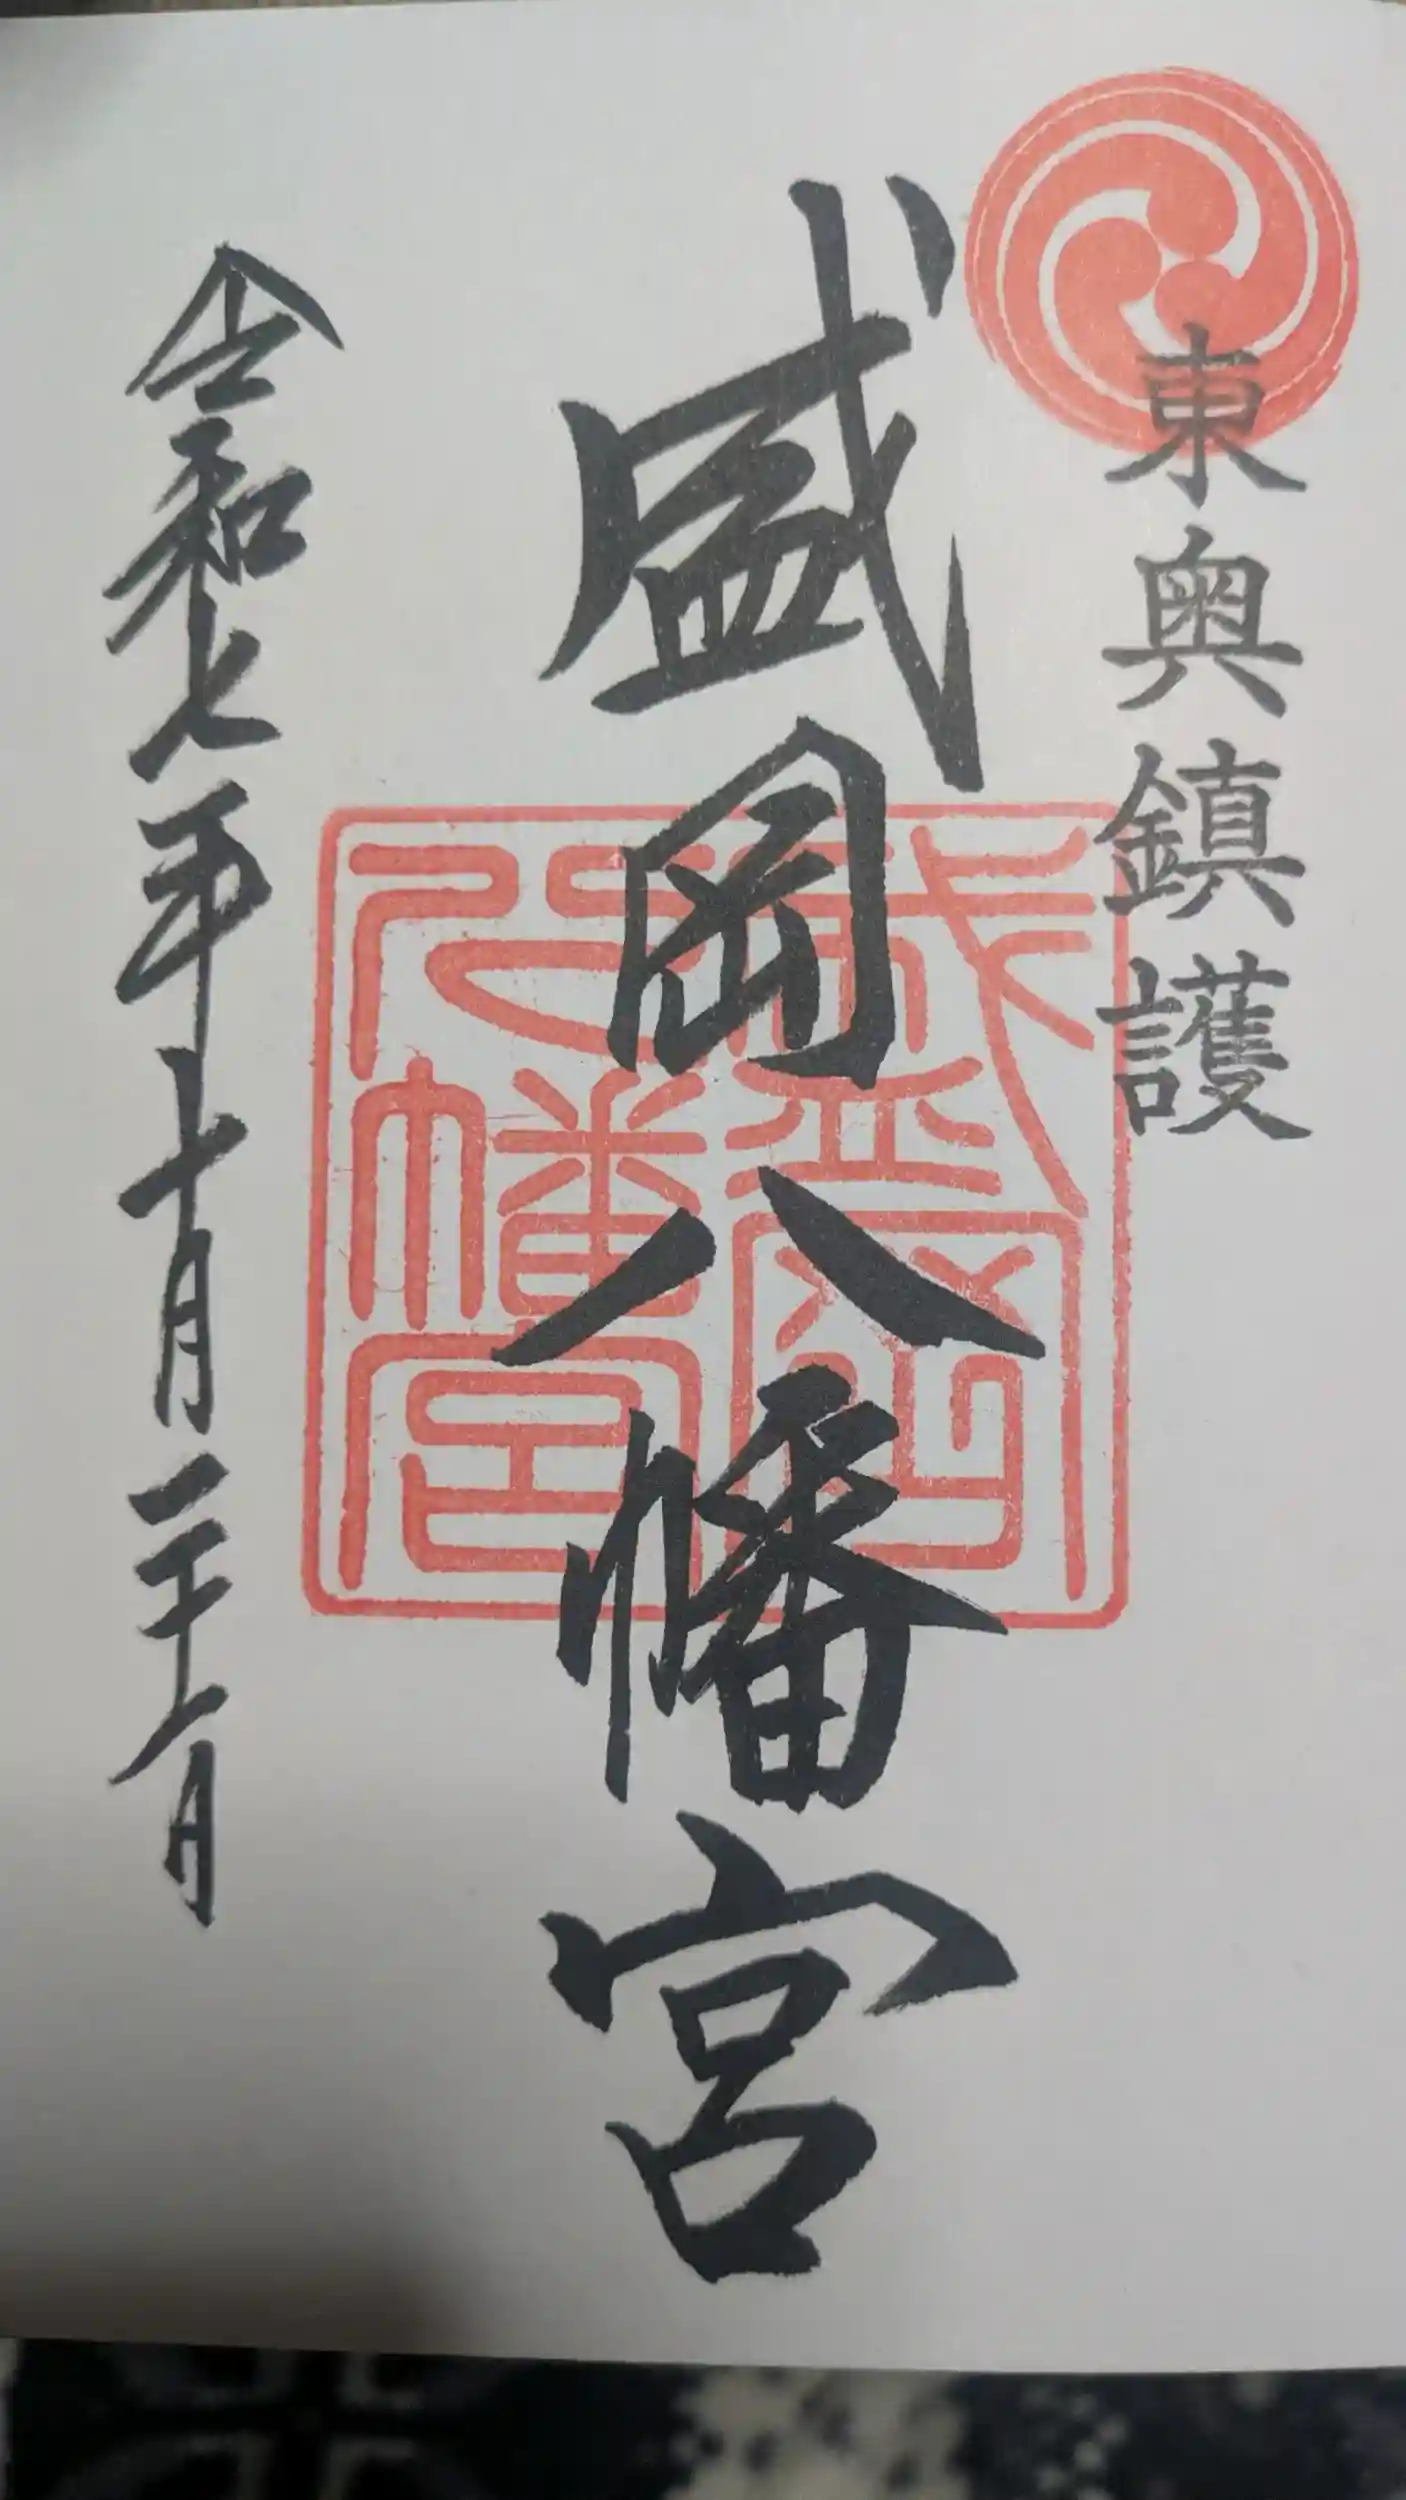 東奥鎮護
盛岡八幡宮
盛岡
八幡宮
令和七年十月二十日